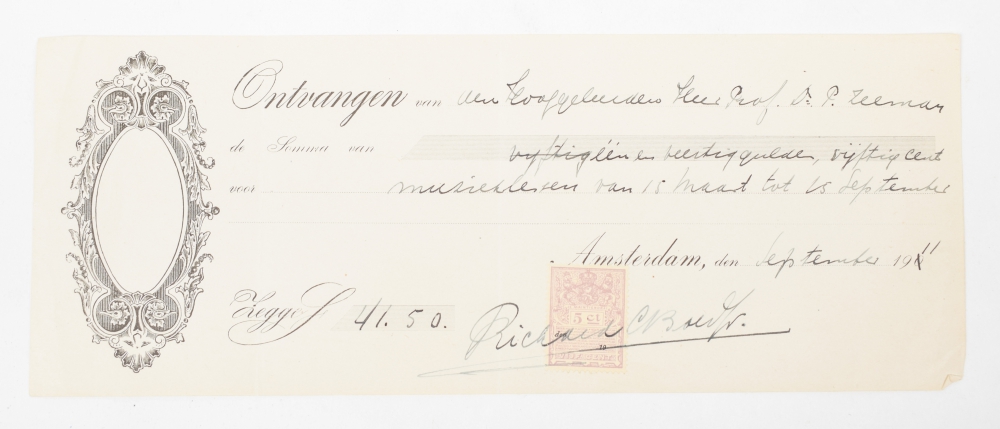 Ontvangen van den Hooggeleerden Heer Prof. Dr. P. Zeeman
de Somma van vijftig één en veertig gulden, vijftig cent
voor muzieklessen van 15 Maart tot 15 September
Amsterdam, den September 1911
Zegge f 41.50.
5 Ct
Richard
19